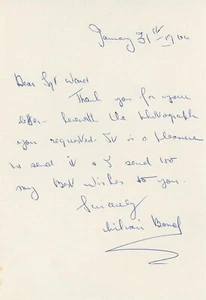 January 31st
Dear Sgt
Thank you for your
letter. Herewith the photograph
you requested. It is a pleasure
to send it & I send too
my Best Wishes to you.
Sincerely